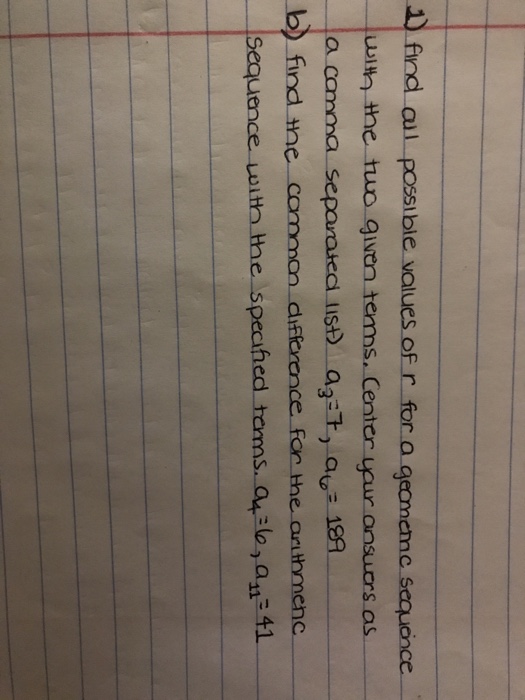 1) find all possible values of r for a geometric sequence
with the two given terms. (enter your answers as
a comma separated list) a₃=7, a₆= 189
b) find the common difference for the arithmetic
sequence with the specified terms. a₄=6, a₁₁=41